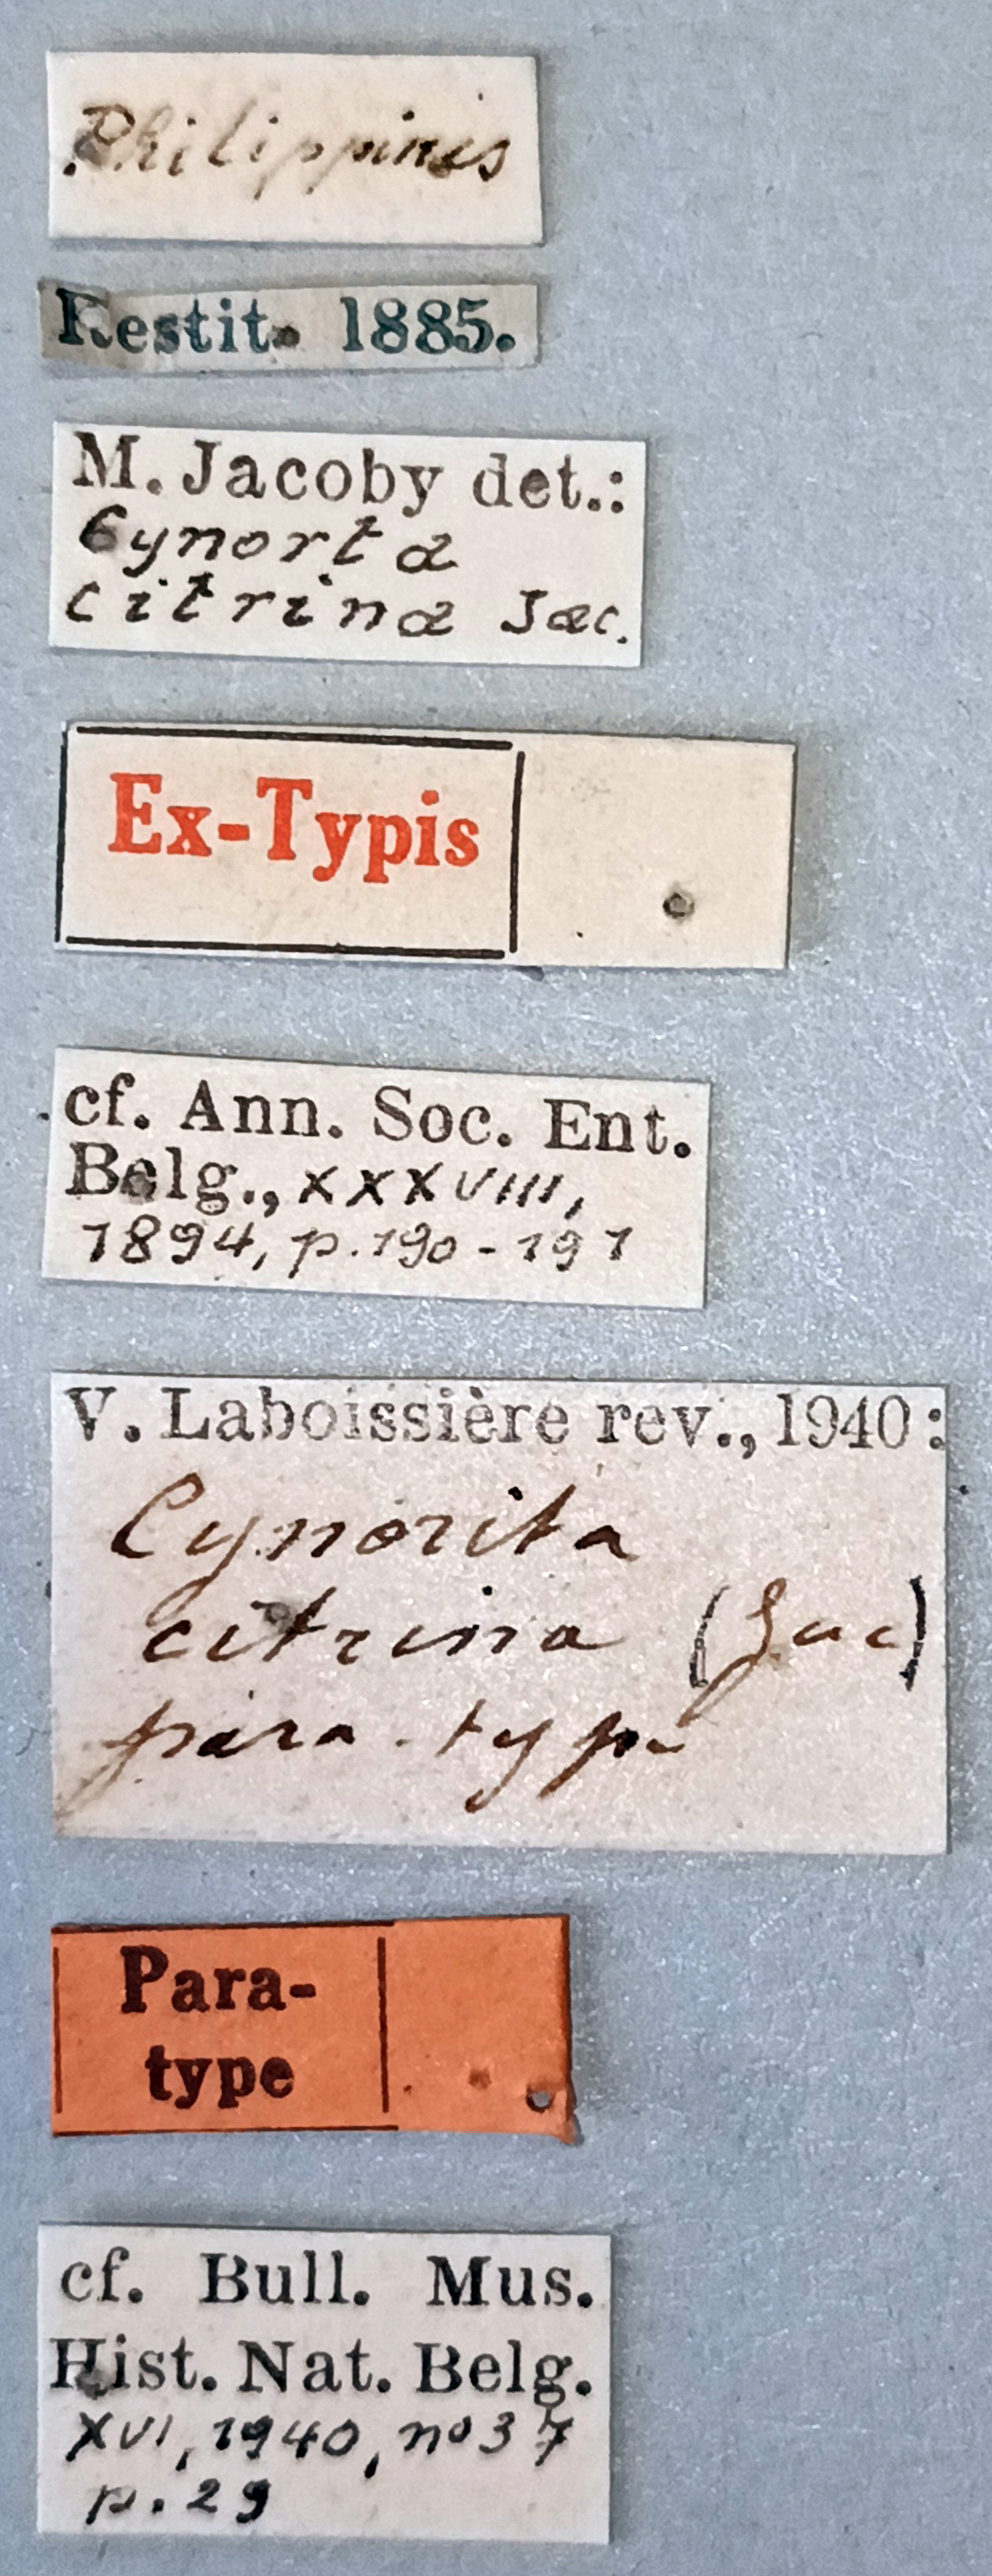 Philippines
Restit. 1885.
M. Jacoby det.:
Cynorta
citrina Jac.
Ex-Typis
cf. Ann. Soc. Ent.
Belg., XXXVIII,
1894, p. 190-191
V. Laboissière rev., 1940:
Cynorita
citrina (Jac)
para-type
Para-
type
cf. Bull. Mus.
Hist. Nat. Belg.
XVI, 1940, no 37
p. 29